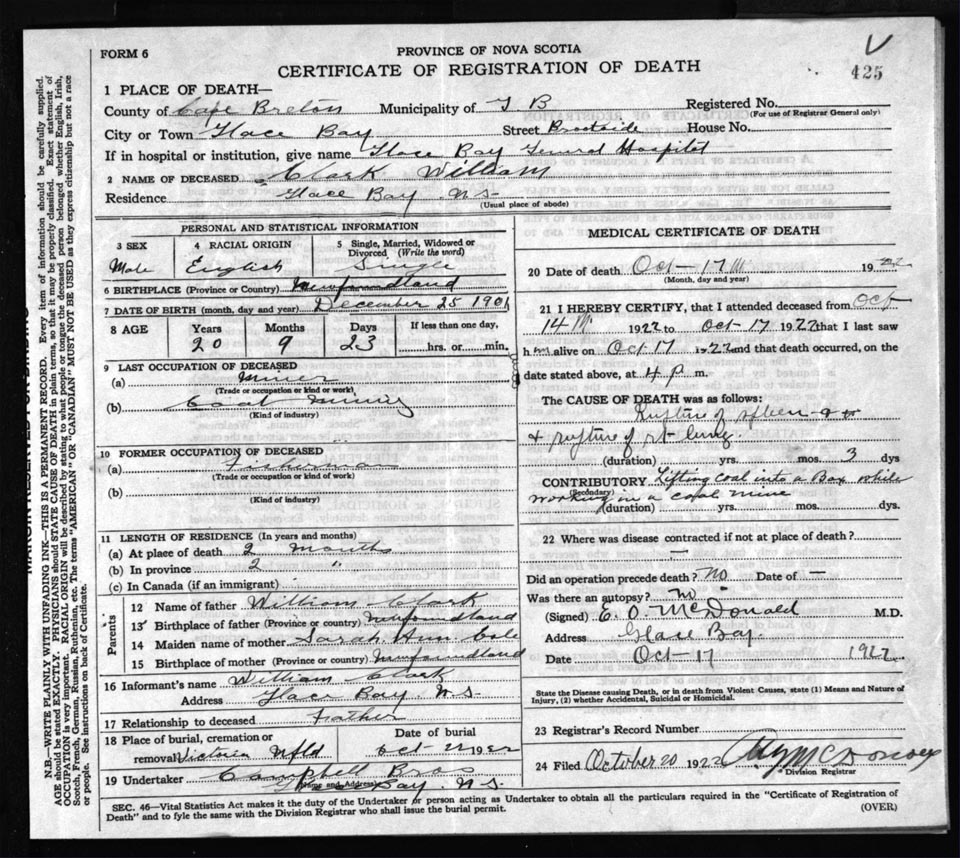 FORM 6
PROVINCE OF NOVA SCOTIA
CERTIFICATE OF REGISTRATION OF DEATH
425
1 PLACE OF DEATH—
County of Cape Breton Municipality of G B Registered No.
(For use of Registrar General only)
City or Town Glace Bay Street Brookside House No.
If in hospital or institution, give name Glace Bay General Hospital
2 NAME OF DECEASED Clark William
Residence Glace Bay N.S.
(Usual place of abode)
PERSONAL AND STATISTICAL INFORMATION
3 SEX 4 RACIAL ORIGIN 5 Single, Married, Widowed or
Divorced (Write the word)
Male English Single
6 BIRTHPLACE (Province or Country) Newfoundland
7 DATE OF BIRTH (month, day and year) December 25 1901
8 AGE Years Months Days If less than one day,
20 9 23 hrs. or min.
9 LAST OCCUPATION OF DECEASED
(a) Miner
(Trade or occupation or kind or work)
(b) Coal Mining
(Kind of industry)
10 FORMER OCCUPATION OF DECEASED
(a) Fisherman
(Trade or occupation or kind of work)
(b)
(Kind of industry)
11 LENGTH OF RESIDENCE (In years and months)
(a) At place of death 2 Months
(b) In province 2 "
(c) In Canada (if an immigrant)
Parents
12 Name of father William Clark
13 Birthplace of father (Province or country) Newfoundland
14 Maiden name of mother Sarah Ann Cole
15 Birthplace of mother (Province or country) Newfoundland
16 Informant's name William Clark
Address Glace Bay N.S.
17 Relationship to deceased Father
18 Place of burial, cremation or Date of burial
removal Victoria Nfld Oct 1922
19 Undertaker Campbell Bros
(Name and Address) Glace Bay. N.S.
MEDICAL CERTIFICATE OF DEATH
20 Date of death Oct-17th 1922
(Month, day and year)
21 I HEREBY CERTIFY, that I attended deceased from Oct
14th 1922 to Oct 17 1922 that I last saw
him alive on Oct 17 1922 and that death occurred, on the
date stated above, at 4 p m.
The CAUSE OF DEATH was as follows:
Rupture of spleen
& rupture of rt lung.
(duration) yrs. mos. 3 dys
CONTRIBUTORY Lifting coal into a Box while
(Secondary)
working in a coal mine
(duration) yrs. mos. dys.
22 Where was disease contracted if not at place of death?
—
Did an operation precede death? No Date of —
Was there an autopsy? no
(Signed) E. O. McDonald M.D.
Address Glace Bay.
Date Oct-17 1922
State the Disease causing Death, or in death from Violent Causes, state (1) Means and Nature of
Injury, (2) whether Accidental, Suicidal or Homicidal.
23 Registrar's Record Number
24 Filed October 20 1922
Division Registrar
SEC. 46—Vital Statistics Act makes it the duty of the Undertaker or person acting as Undertaker to obtain all the particulars required in the "Certificate of Registration of
Death" and to fyle the same with the Division Registrar who shall issue the burial permit.
(OVER)
N.B.—WRITE PLAINLY WITH UNFADING INK—THIS IS A PERMANENT RECORD. Every item of information should be carefully supplied.
AGE should be stated EXACTLY. PHYSICIANS should STATE CAUSE OF DEATH in plain terms, so that it may be properly classified. Exact statement of
OCCUPATION is very important. RACIAL ORIGIN will be described by stating to what people or tongue the deceased person belonged whether English, Irish,
Scotch, French, German, Russian, Ruthenian, etc. The terms "AMERICAN" or "CANADIAN" MUST NOT BE USED as they express citizenship but not a race
or people. See instructions on back of Certificate.